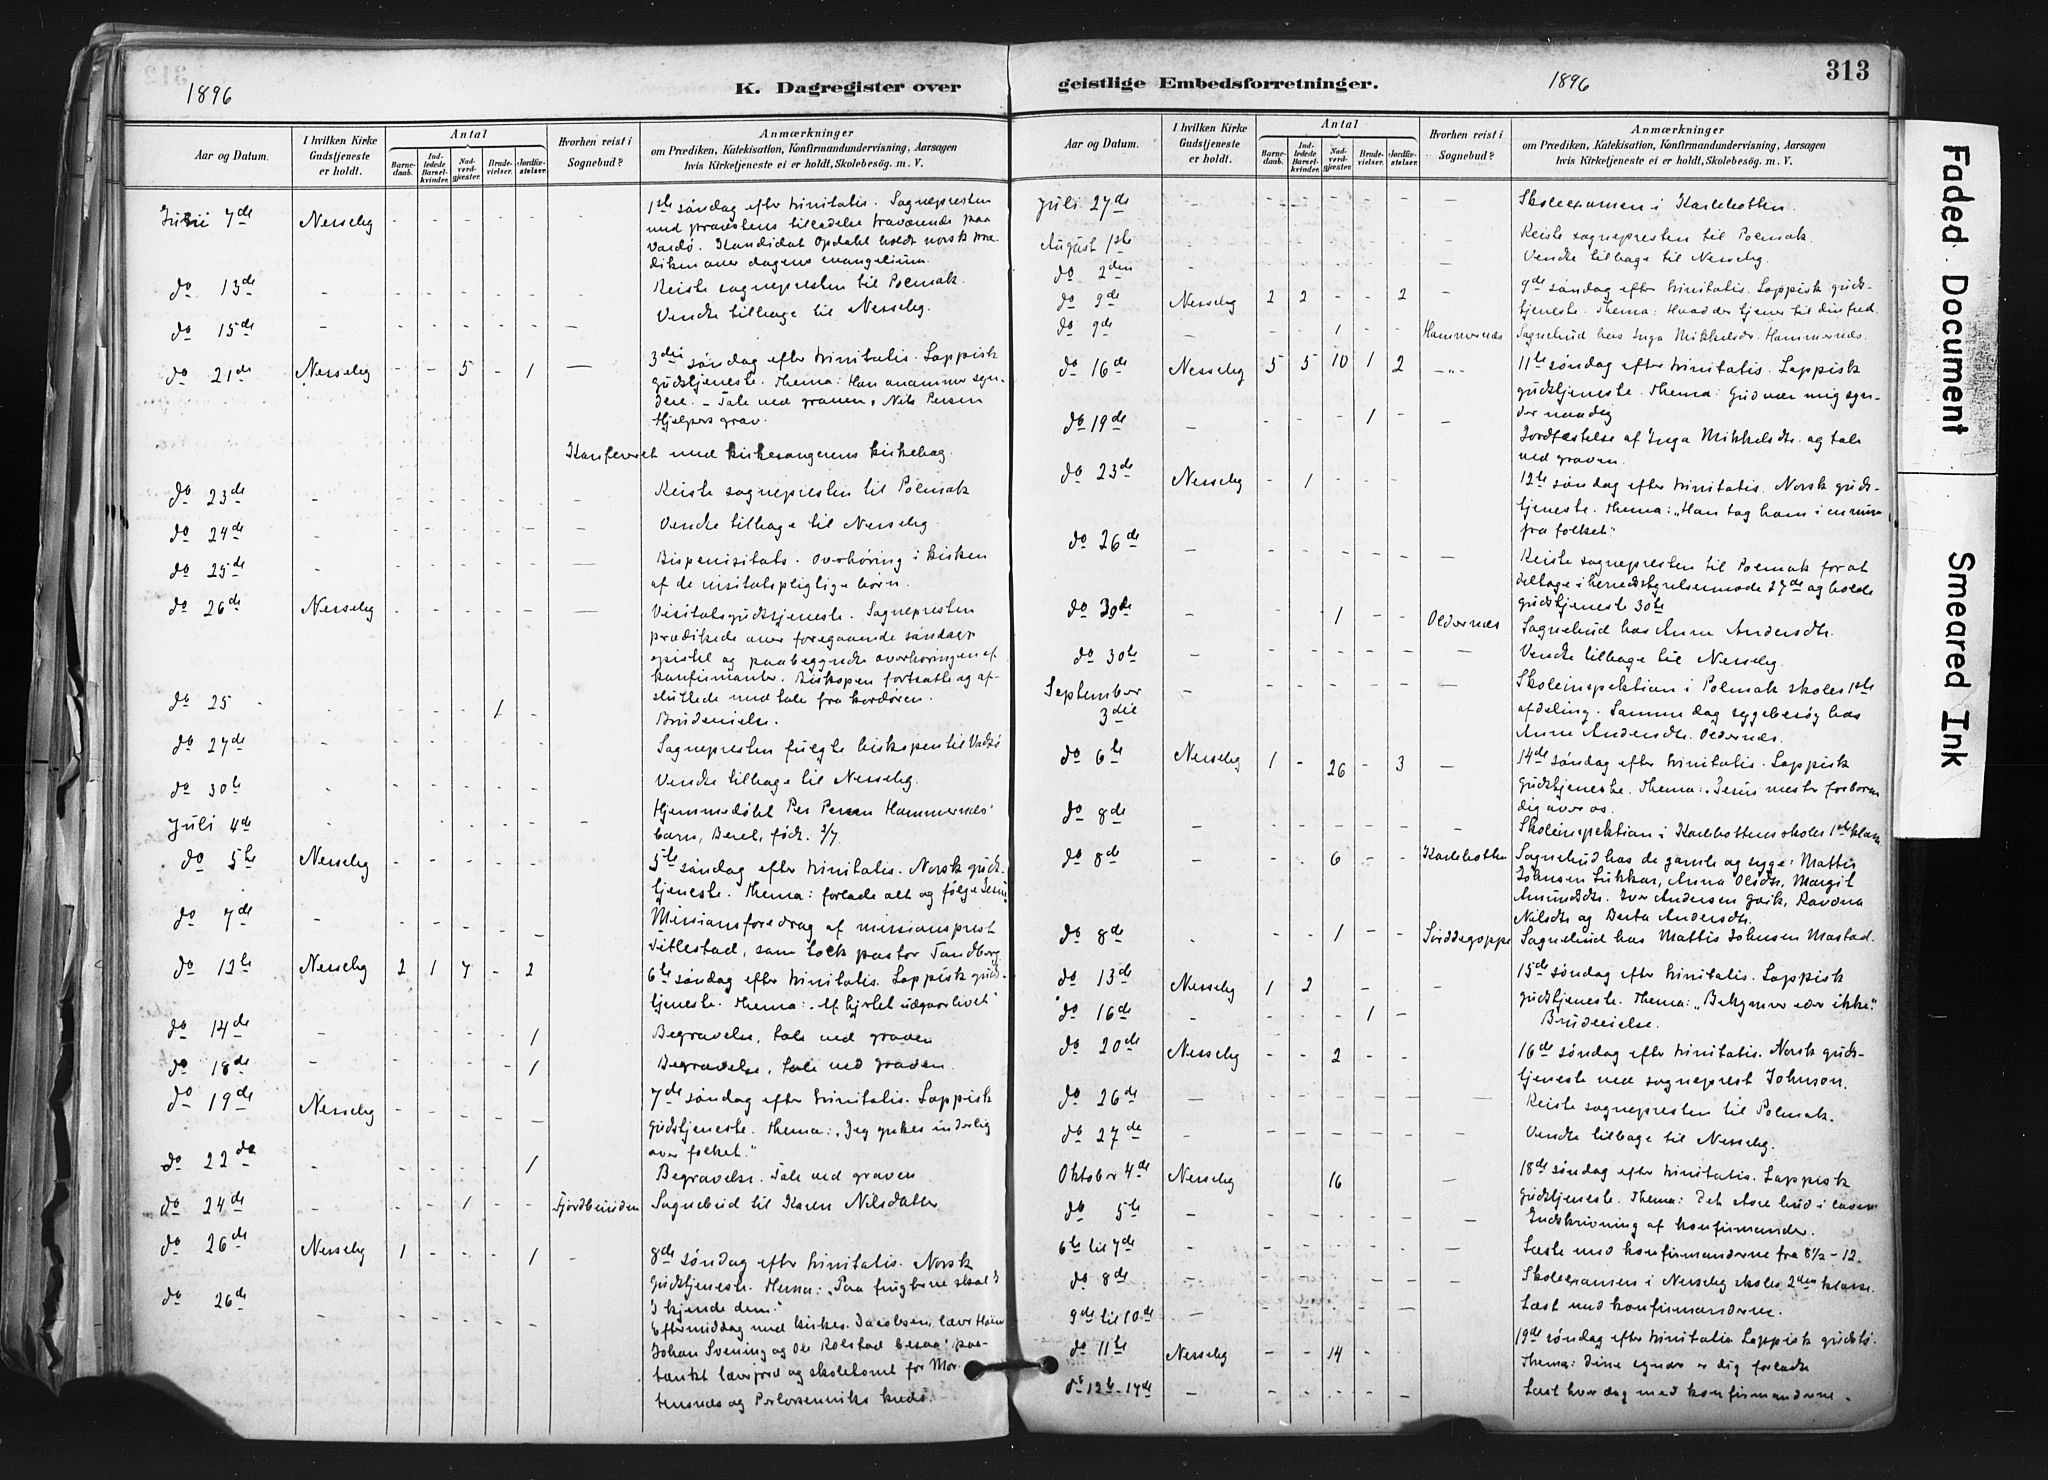 1896
K. Dagregister over
Aar og Datum.
I hvilken Kirke
Gudstjeneste
er holdt.
Antal
Barne-
daab.
Ind-
ledede
Barsel-
kvinder.
Nad-
verd-
gjæster.
Brude-
vielser.
Jordfæ-
stelser.
Hvorhen reist i
Sognebud?
Anmærkninger
om Prædiken, Katekisation, Konfirmandundervisning, Aarsagen
hvis Kirketjeneste ei er holdt, Skolebesøg. m. V.
Juni 7de Nesseby - - - - - 1ste søndag efter trinitatis. Sognepresten
med provstens tilladelse fraværende paa
Vardø. Kandidat Opdahl holdt norsk præ-
diken over dagens evangelium.
do 13de - - - - - - Reiste sognepresten til Polmak.
do 15de - - - - - - - Vendte tilbage til Nesseby.
do 21de Nesseby - - 5 - 1 - 3die søndag efter trinitatis. Lappisk
gudstjeneste. Thema: Han anammer syn-
dere. - Tale ved graven, Nils Persen
Hjelpers grav.
Konfereret med kirkesangerens kirkebog.
do 23de - - - - - - - Reiste sognepresten til Polmak
do 24de - - - - - - - Vendte tilbage til Nesseby.
do 25de - - - - - - - Bispevisitats. Overhøring i kirken
af de visitatspligtige børn.
do 26de Nesseby - - - - - - Visitatsgudstjeneste. Sognepresten
prædikede over foregaaende søndags
epistel og paabegyndte overhøringen af
konfirmanter. Biskopen fortsatte og af-
sluttede med tale fra kordøren.
do 25 - - - - 1 - Brudevielse.
do 27de - - - - - - Sognepresten fulgte biskopen til Vadsø
do 30te - - - - - - Vendte tilbage til Nesseby.
Juli 4de - - - - - - - Hjemmedøbt Per Persen Hammernæs'
barn, Berel, født 3/7
do 5te Nesseby - - - - - 5te søndag efter trinitatis. Norsk guds-
tjeneste. Thema: forlade alt og følge Jesus
do 7de - - - - - - Missionsforedrag af missionsprest
Vitlestad, som Lock pastor Tandberg
do 12te Nesseby 2 1 7 - 2 6te søndag efter trinitatis. Lappisk guds-
tjeneste. Thema: „Af hjertet udgaar livet"
do 14de - - - - - 1 Begravelse, tale ved graven
do 18de - - - - - 1 Begravelse, tale ved graven.
do 19de Nesseby - - - - - 7de søndag efter trinitatis. Lappisk
gudstjeneste. Thema: „Jeg ynkes inderlig
over folket."
do 22de - - - - - 1 Begravelse. Tale ved graven
do 24de - - - 1 - - Fjordbunden Sognebud til Karen Nilsdatter
do 26de Nesseby 1 - - - 1 - 8de søndag efter trinitatis. Norsk
gudstjeneste. Thema: „Paa frugterne skal I
do 26de - - - - - - I kjende dem."
Eftermiddag med kirkes. Jacobsen, lærer
Johan Svening og Ole Kolstad besaa paa-
tænkt lærerjord og skoletomt for Mor-
tensnæs og kreds.

geistlige Embedsforretninger.
1896
313
Aar og Datum.
I hvilken Kirke
Gudstjeneste
er holdt.
Antal
Barne-
daab.
Ind-
ledede
Barsel-
kvinder.
Nad-
verd-
gjæster.
Brude-
vielser.
Jordfæ-
stelser.
Hvorhen reist i
Sognebud?
Anmærkninger
om Prædiken, Katekisation, Konfirmandundervisning, Aarsagen
hvis Kirketjeneste ei er holdt, Skolebesøg. m. V.
Juli 27de - - - - - - - Skoleexamen i Karlebotten.
August 1ste - - - - - - - Reiste sognepresten til Polmak.
do 2den - - - - - - - Vendte tilbage til Nesseby.
do 9de Nesseby 2 2 - - 2 - 9de søndag efter trinitatis. Lappisk guds-
tjeneste. Thema: Hvad der tjener til din fred.
do 9de - - - 1 - - Hammernæs Sognebud hos Inga Mikkelsdr. Hammernæs.
do 16de Nesseby 5 5 10 1 2 -„- 11te søndag efter trinitatis. Lappisk
gudstjeneste. Thema: Gud vær mig syn-
der naadig
do 19de - - - - 1 - - Jordfæstelse af Inga Mikkelsdtr. og tale
ved graven.
do 23de Nesseby - 1 - - - 12te søndag efter trinitatis. Norsk guds-
tjeneste. Thema: „Han tog ham i enrum
fra folket"
do 26de - - - - - - - Reiste sognepresten til Polmak for at
deltage i herredsstyrelsesmøde 27de og holde
gudstjeneste 30te
do 30de - - - 1 - - Oldernæs Sognebud hos Anne Andersdtr.
do 30te - - - - - - - Vendte tilbage til Nesseby.
September
3die - - - - - - - Skoleinspektion i Polmak skoles 1ste
afdeling. Samme dag sygebesøg hos
Anne Andersdtr. Oldernæs.
do 6te Nesseby 1 - 26 - 3 - 14de søndag efter trinitatis. Lappisk
gudstjeneste. Thema: „Jesus mester forbarm
dig over os.
do 8de - - - - - - - Skoleinspektion i Karlebottens skoles 1ste klasse
do 8de - - - 6 - - Karlebotten Sognebud hos de gamle og syge: Mattis
Johnsen Lukkar, Anna Olsdtr, Margit
Amundsdtr. Iver Andersen Ravdna
Nilsdtr og Berta Andersdtr.
do 8de - - - 1 - - Sognebud hos Mattis Johnsen Mastad.
do 13de Nesseby 1 2 - - - 15de søndag efter trinitatis. Lappisk
gudstjeneste. Thema: „Bekymrer eder ikke."
do 16de - - - - 1 - Brudevielse.
do 20de Nesseby - - 2 - - 16de søndag efter trinitatis. Norsk guds-
tjeneste ved sogneprest Johnson.
do 26de - - - - - - - Reiste sognepresten til Polmak.
do 27de - - - - - - - Vendte tilbage til Nesseby.
Oktober 4de Nesseby - - 16 - - 18de søndag efter trinitatis. Lappisk
gudstjeneste. Thema: Det store bud i loven
do 5te - - - - - - - Indskrivning af konfirmander.
6te til 7de - - - - - - - Læste med konfirmanderne fra 8½-12.
do 8de - - - - - - - Skoleexamen i Nesseby skoles 2den klasse.
9de til 10de - - - - - - Læst med konfirmanderne.
do 11te Nesseby - - 14 - 19de søndag efter trinitatis Lappisk gudstj.
Thema: Dine synder er dig forladte
do 12te-14de - - - - - - - Læst hver dag med konfirmanderne.
Faded Document
Smeared Ink